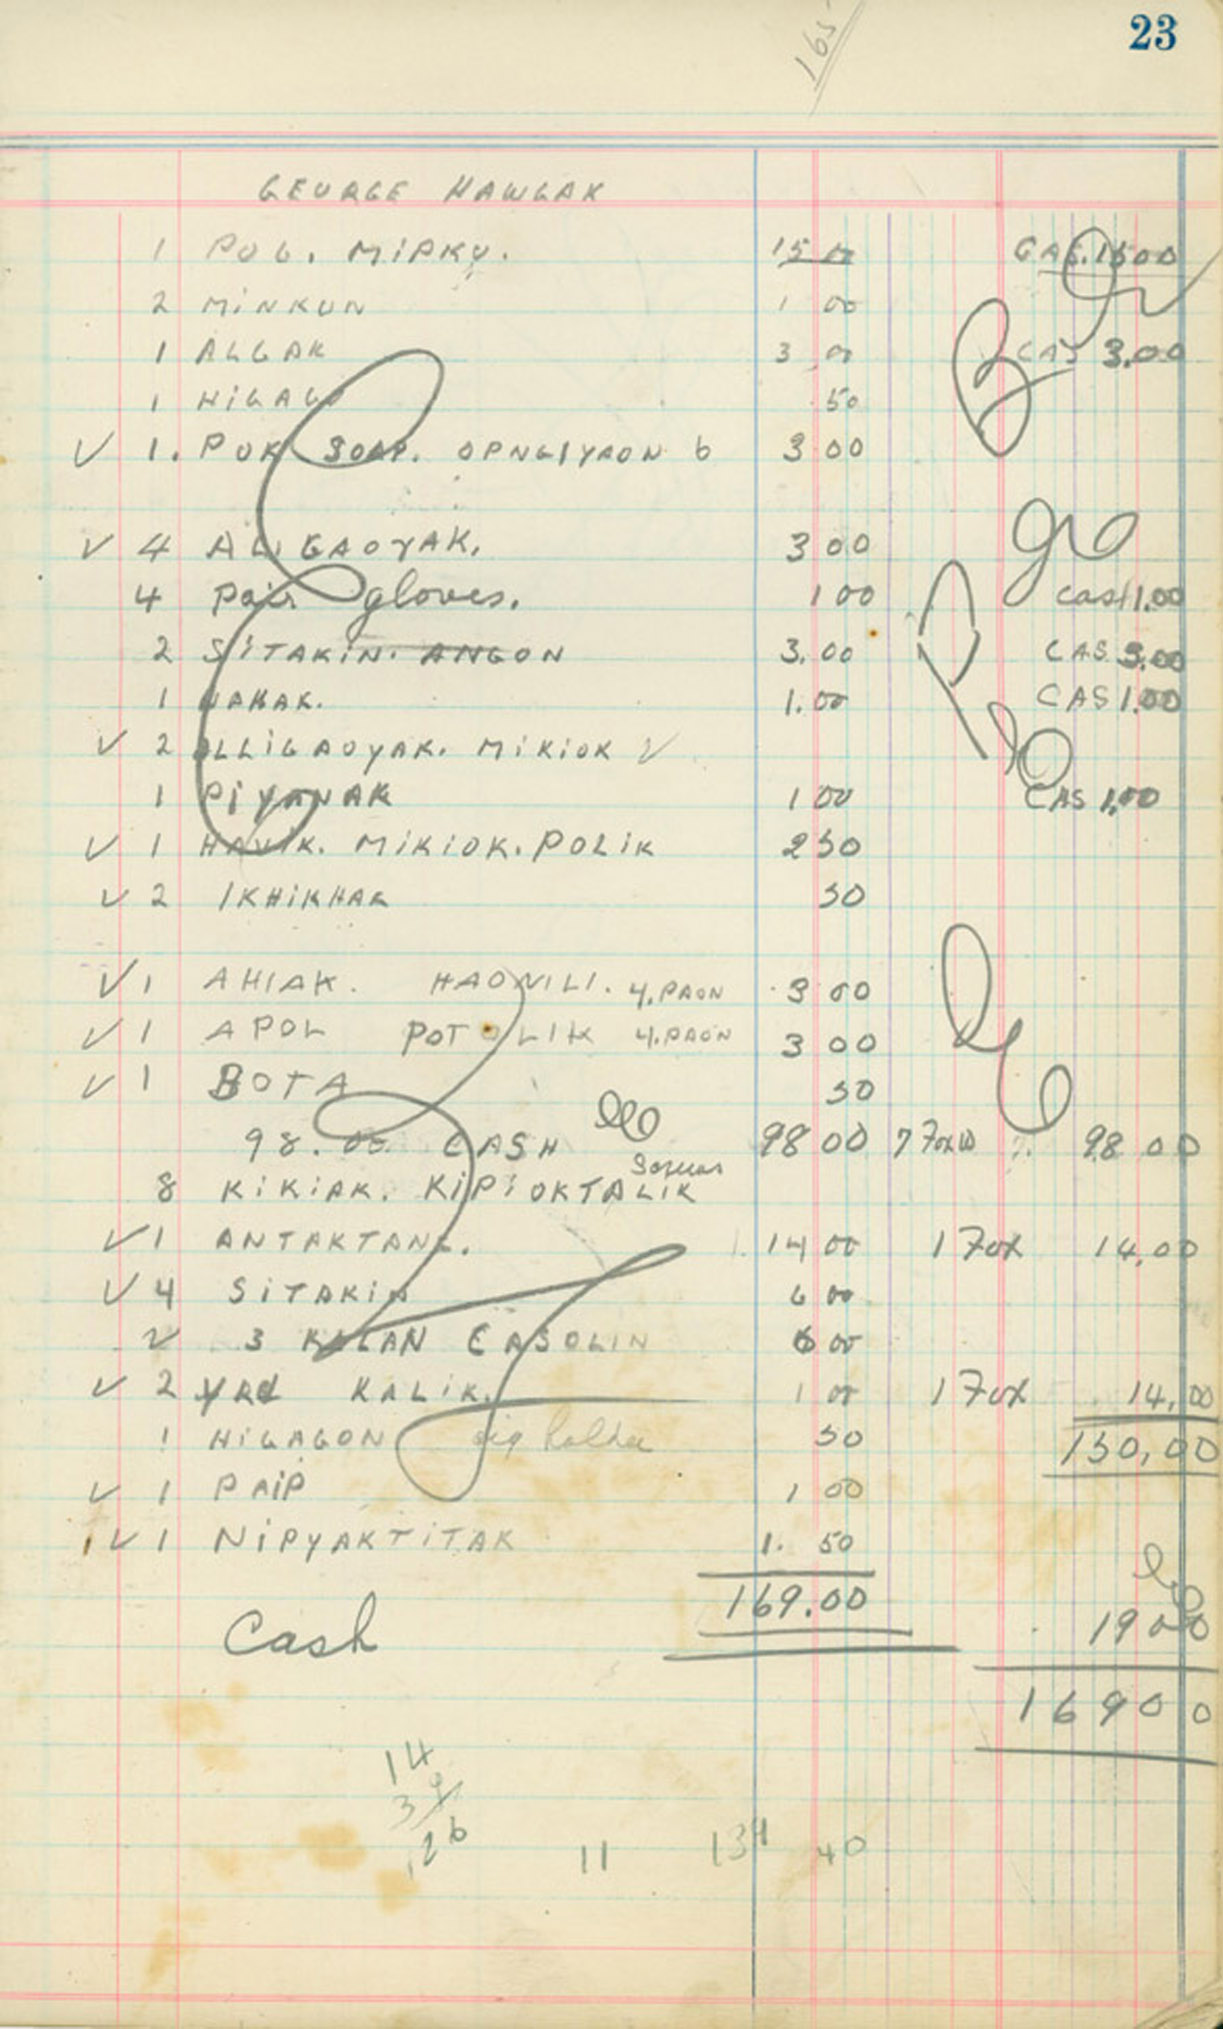 165
23
GEORGE HAWGAK
1 POG. MIPKU. 15 00 CAS. 1500
2 MINKUN 1 00
1 ALGAK 3 00 CAS 3.00
1 HIGAG 50
✓ 1. PUK SOAP. OPNGIYAON 6 3 00
✓ 4 GAOYAK. 3 00
4 Pair gloves. 1 00 cash 1.00
2 SITAKIN. ANGON 3.00 CAS 3.00
1 1.00 CAS 1.00
✓ 2 ALLIGAOYAK. MIKIOK ✓
1 PIYANAK 1 00 CAS 1.00
✓ 1 HAVIK. MIKIOK. POLIK 2 50
✓ 2 IKHIKHAK 50
✓ 1 AHIAK. HAOVILI. 4. PAON 3 00
✓ 1 APOL POTOLIK 4. PAON 3 00
✓ 1 BOTA 50
98.00 CASH 98 00 7 Fox 98 00
8 KIKIAK. KIPIOKTALIK
✓ 1 ANTAKTANG. 14 00 1 Fox 14.00
✓ 4 SITAKIN 6 00
✓ 3 KALAN GASOLIN 6 00
✓ 2 YRd KALIK. 1 00 1 Fox 14.00
1 HIGAGON cig holder 50 130,00
✓ 1 PAIP 1 00
✓ 1 NIPYAKTITAK 1. 50
169.00
Cash 19 00
169 00
14
39
126
11 134 40